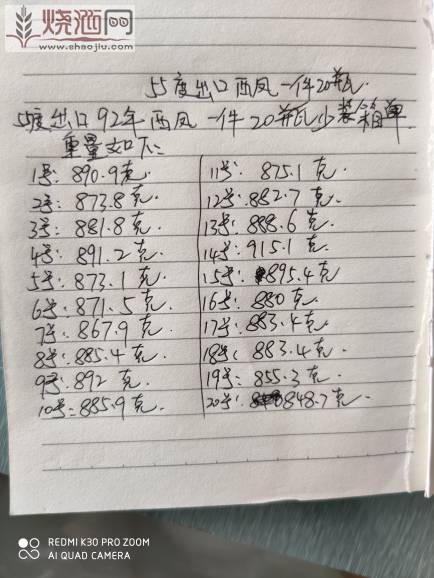 烧酒网
www.shaojiu.com
55度出口西凤一件20瓶.
55度出口92年西凤一件20瓶少装箱单
重量如下:
1号: 890.9克
2号: 873.8克.
3号: 881.8克.
4号: 891.2克.
5号: 873.1克.
6号: 871.5克.
7号: 867.9克.
8号: 885.4克.
9号: 892克.
10号: 885.9克.
11号: 875.1克.
12号: 882.7克.
13号: 888.6克.
14号: 915.1克.
15号: 895.4克
16号: 880克.
17号: 883.4克.
18号: 883.4克.
19号: 855.3克.
20号: 848.7克.
REDMI K30 PRO ZOOM
AI QUAD CAMERA